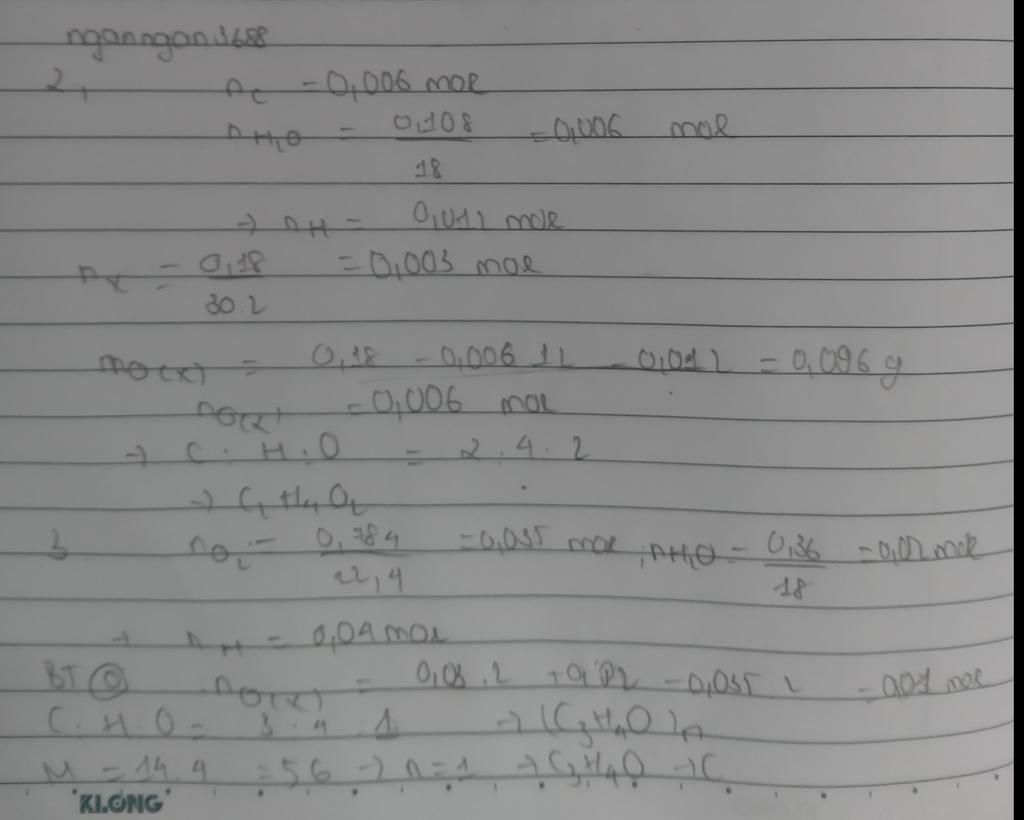 nganngan3688
2, nC = 0,006 mol
nH2O = 0,108 / 18 = 0,006 mol
→ nH = 0,012 mol
nX = 0,18 / 30.2 = 0,003 mol
mO(X) = 0,18 - 0,006 12 - 0,012 = 0,096 g
nO(X) = 0,006 mol
→ C : H : O = 2 : 4 : 2
→ C2H4O2
3 nO2 = 0,784 / 22,4 = 0,035 mol ; nH2O = 0,36 / 18 = 0,02 mol
→ nH = 0,04 mol
BT O nO(X) = 0,03 . 2 + 0,02 - 0,035 2 = 0,01 mol
C : H : O = 3 : 4 : 1 → (C3H4O)n
M = 14.4 = 56 → n = 1 → C3H4O → C
KLONG